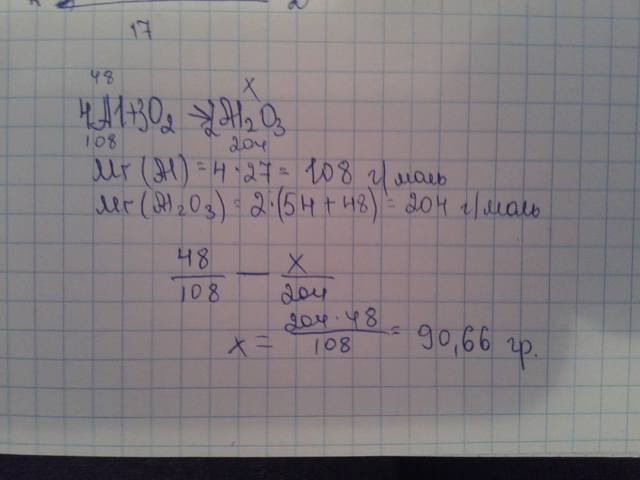 17
48 x
4Al+3O₂ → 2Al₂O₃
108 204
Mr (Al) = 4 · 27 = 108 г/моль
Mr (Al₂O₃) = 2·(54 + 48) = 204 г/моль
48/108 — x/204
x = 204 · 48/108 = 90,66 гр.